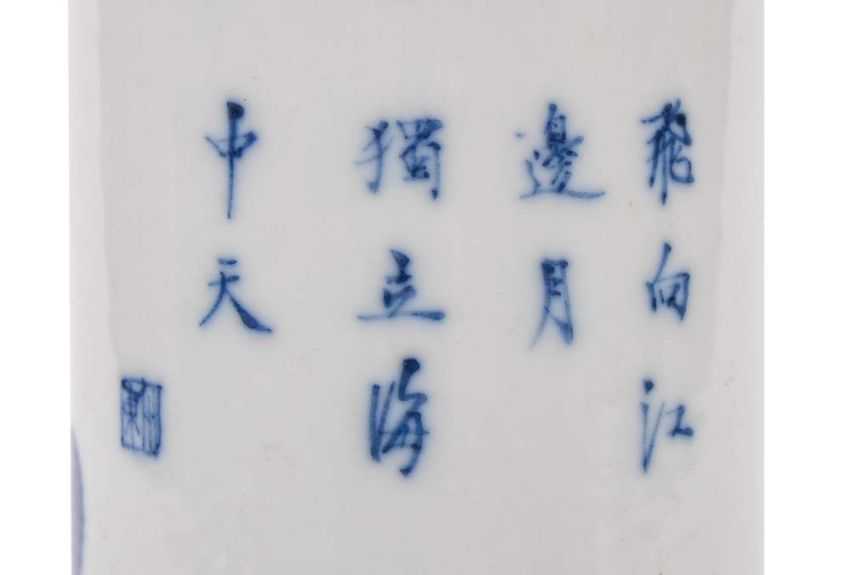 飛向江
邊月
獨立海
中天